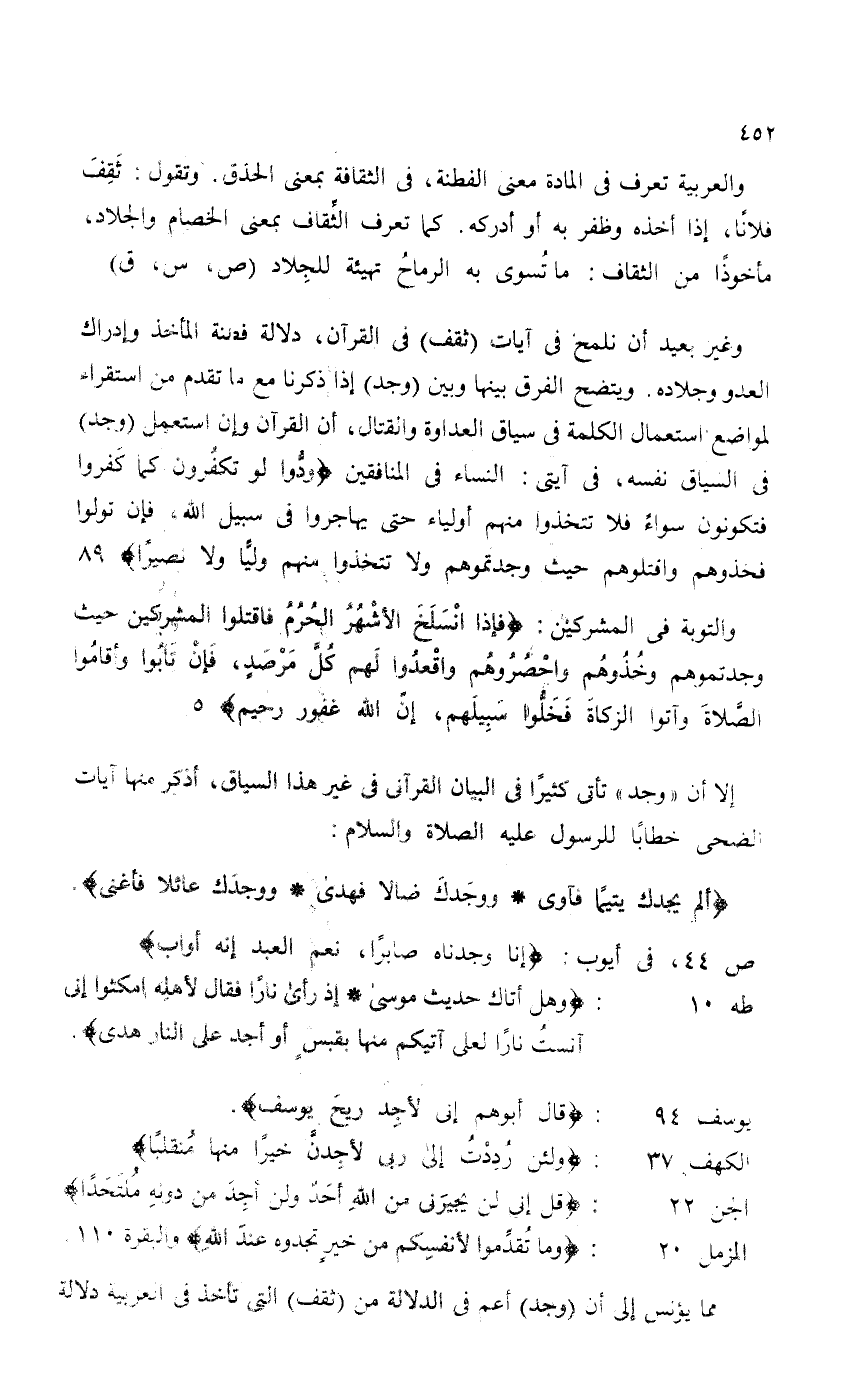 ٤٥٢
والعربية تعرف فى المادة معنى الفطنة، فى الثقافة بمعنى الحذق. وتقول : ثَقِفَ
فلانًا، إذا أخذه وظفر به أو أدركه. كما تعرف الثِّقاف بمعنى الخصام والجلاد،
مأخوذًا من الثقاف : ما تُسوى به الرماحُ تهيئة للجِلاد (ص، س، ق)
وغير بعيد أن نلمح فى آيات (ثقف) فى القرآن، دلالة فطنة المأخذ وإدراك
العدو وجلاده. ويتضح الفرق بينها وبين (وجد) إذا ذكرنا مع ما تقدم من استقراء
لمواضع استعمال الكلمة فى سياق العداوة والقتال، أن القرآن وإن استعمل (وجد)
فى السياق نفسه، فى آيتى : النساء فى المنافقين ﴿ودُّوا لو تكفُرون كما كَفروا
فتكونون سواءً فلا تتخذوا منهم أولياء حتى يهاجروا فى سبيل الله، فإن تولوا
فخذوهم واقتلوهم حيث وجدتموهم ولا تتخذوا منهم وليًّا ولا نصيرًا﴾ ٨٩
والتوبة فى المشركين : ﴿فإذا انْسَلَخَ الأشْهُرُ الحُرُمُ فاقتلوا المشركين حيث
وجدتموهم وخُذُوهُم واحْصُرُوهُم واقْعدُوا لَهم كُلَّ مَرْصَدٍ، فَإنْ تَابُوا وأقامُوا
الصَّلاةَ وآتوا الزكاةَ فَخَلُّوا سَبِيلَهم، إنَّ الله غفور رحيم﴾ ٥
إلا أن «وجد» تأتى كثيرًا فى البيان القرآنى فى غير هذا السياق، أذكر منها آيات
الضحى خطابًا للرسول عليه الصلاة والسلام :
﴿ألم يجدك يتيمًا فآوى * ووجَدكَ ضالا فهدىٰ * ووجدَك عائلا فأغنى﴾.
ص ٤٤، فى أيوب : ﴿إنا وجدناه صابرًا، نعم العبد إنه أواب﴾
طه ١٠ : ﴿وهل أتاك حديث موسىٰ * إذ رأىٰ نارًا فقال لأهله امكثوا إنى
آنستُ نارًا لعلى آتيكم منها بقبسٍ أو أجد على النار هدى﴾.
يوسف ٩٤ : ﴿قال أبوهم إنى لأجِد ريحَ يوسف﴾.
الكهف ٣٧ : ﴿ولئن رُدِدْتُ إلىٰ ربى لأجِدنَّ خيرًا منها مُنقلبًا﴾
الجن ٢٢ : ﴿قل إنى لن يجيرَنى من اللهِ أحَدٌ ولن أجِدَ من دونهِ مُلتَحَدًا﴾
المزمل ٢٠ : ﴿وما تُقدِّموا لأنفسِكم من خيرٍ تجدوه عندَ اللهِ﴾ والبقرة ١١٠.
مما يؤنس إلى أن (وجد) أعم فى الدلالة من (ثقف) التى تأخذ فى العربية دلالة